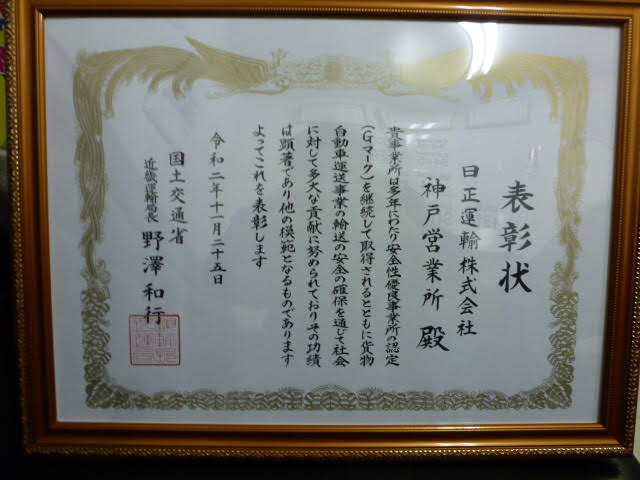 表彰状
日正運輸株式会社
神戸営業所 殿
貴事業所は多年にわたり安全性優良事業所の認定
(Gマーク)を継続して取得されるとともに貨物
自動車運送事業の輸送の安全の確保を通じて社会
に対して多大な貢献に努められておりその功績
は顕著であり他の模範となるものであります
よってこれを表彰します
令和二年十一月二十五日
国土交通省
近畿運輸局長 野澤和行